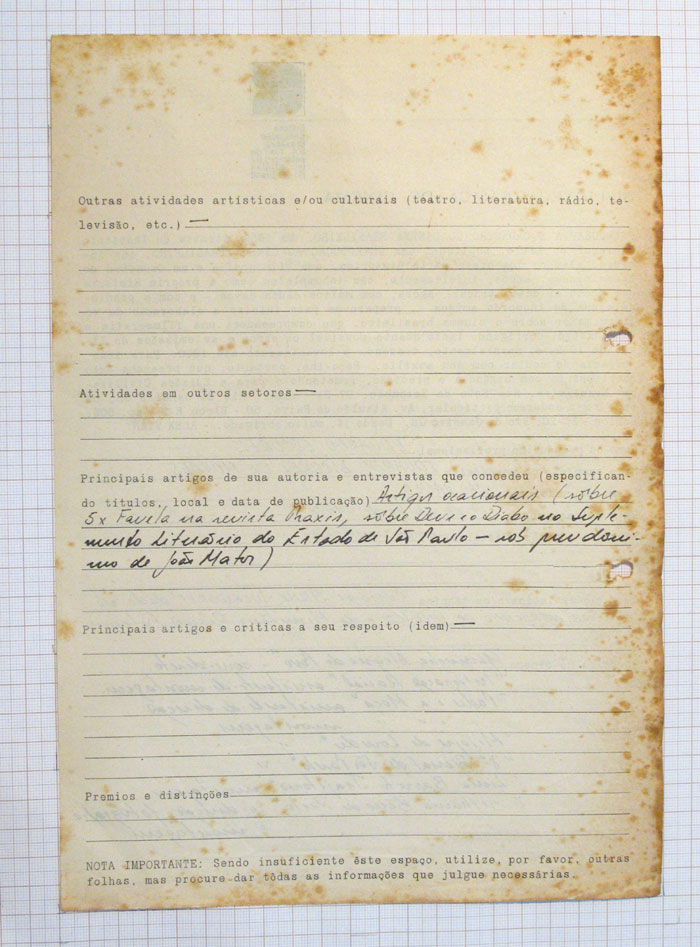 Outras atividades artísticas e/ou culturais (teatro, literatura, rádio, te-
levisão, etc.) —
Atividades em outros setores —
Principais artigos de sua autoria e entrevistas que concedeu (especifican-
do títulos, local e data de publicação) Artigos ocasionais (sobre
5x Favela na revista Praxis, sobre Deus e o Diabo no Suple-
mento Literário do Estado de São Paulo — sob pseudoni-
mo de João Mator)
Principais artigos e críticas a seu respeito (idem) —
Premios e distinções
NOTA IMPORTANTE: Sendo insuficiente êste espaço, utilize, por favor, outras
folhas, mas procure dar tôdas as informações que julgue necessárias.